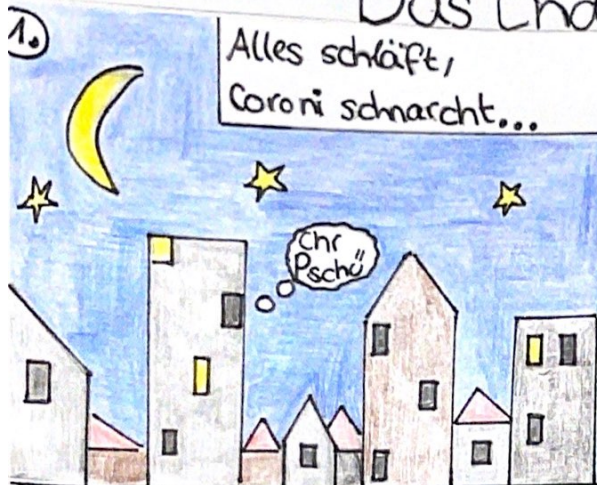 1.
Das
Alles schläft,
Coroni schnarcht...
Chr
Pschü